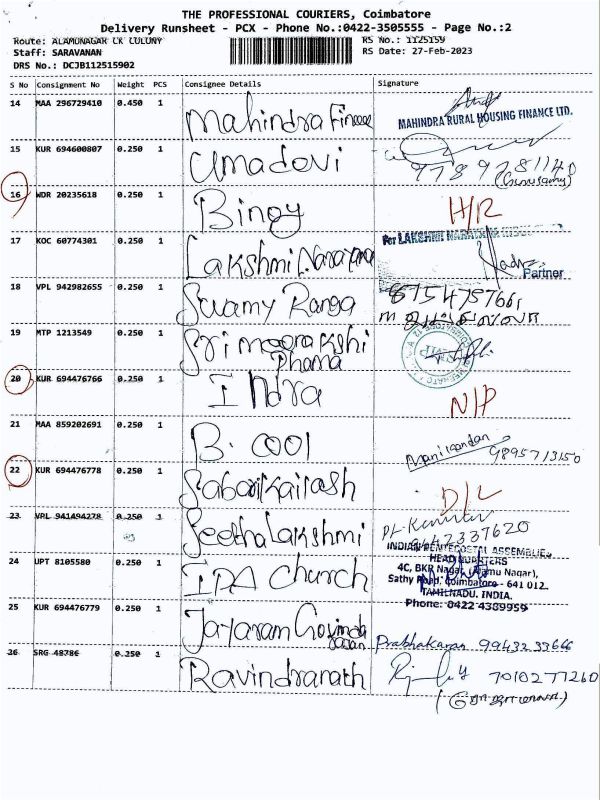 THE PROFESSIONAL COURIERS, Coimbatore
Delivery Runsheet - PCX - Phone No.:0422-3505555 - Page No.:2
Route: ALAMUNAGAR CK COLONY RS No.: 1125159
Staff: SARAVANAN RS Date: 27-Feb-2023
DRS No.: DCJB112515902
S No Consignment No Weight PCS Consignee Details Signature
14 MAA 296729410 0.450 1 Mahindra Finance MAHINDRA RURAL HOUSING FINANCE LTD.
15 KUR 694600807 0.250 1 Umadevi 9789781140
(Gurusamy)
16 WDR 20235618 0.250 1 Binoy H/R
17 KOC 60774301 0.250 1 Lakshmi Narayana For LAKSHMI NARAYANA
Partner
18 VPL 942982655 0.250 1 Swamy Ranga
19 MTP 1213549 0.250 1 Sri meenakshi
Phama
20 KUR 694476766 0.250 1 Indra N/P
21 MAA 859202691 0.250 1 B. cool Manikandan 9895713150
22 KUR 694476778 0.250 1 Sabarikailash D/L
23 VPL 941494278 0.250 1 Seetha Lakshmi 9442337620
24 UPT 8105580 0.250 1 IPA church INDIAN PENTECOSTAL ASSEMBLIES
HEAD QUARTERS
4C, BKR Nagar, (Alamu Nagar),
Sathy Road, Coimbatore - 641 012.
TAMILNADU. INDIA.
Phone: 0422 4389959
25 KUR 694476779 0.250 1 Jayaram Govinda Prabhakaran 9943233666
26 SRG 48786 0.250 1 Ravindranath 7010277260